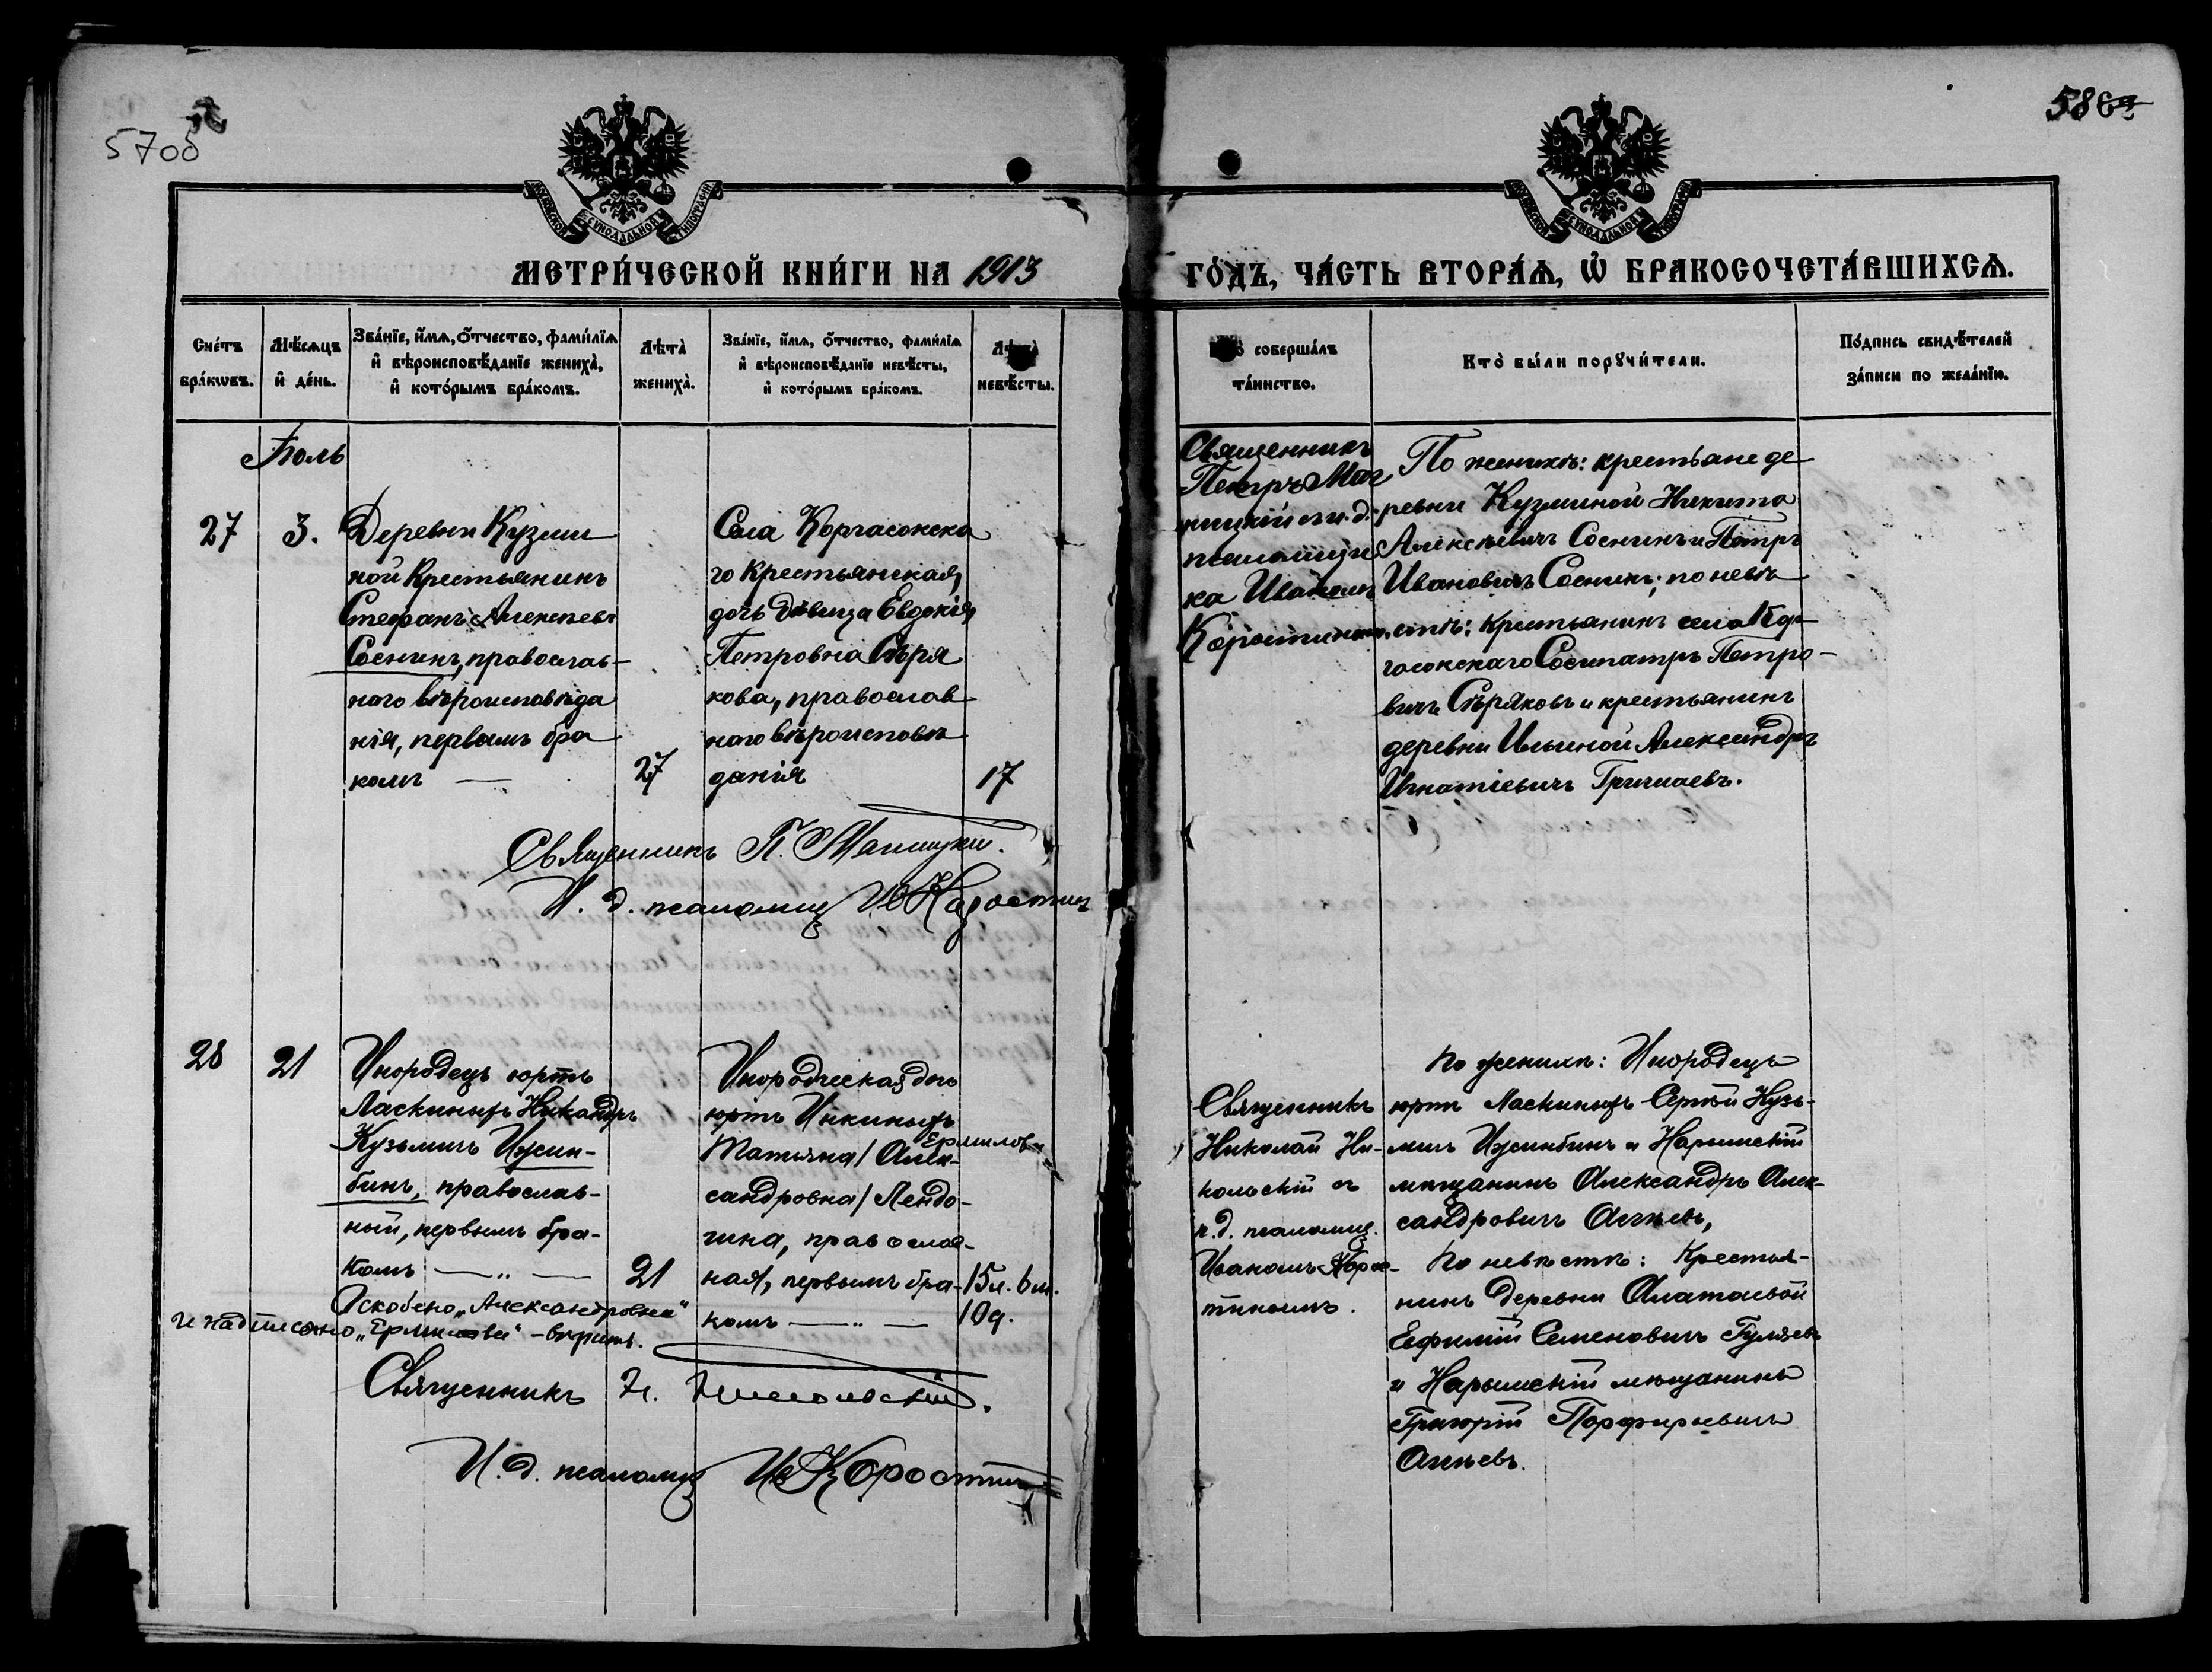 57об
58
МОСКОВСКОЙ СѴНОДАЛЬНОЙ ТИПОГРАФІИ
МОСКОВСКОЙ СѴНОДАЛЬНОЙ ТИПОГРАФІИ
МЕТРИ́ЧЕСКОЙ КНИ́ГИ НА 1913
ГО́ДЪ, ЧА́СТЬ ВТОРА́Ѧ, Ѽ БРАКОСОЧЕТА́ВШИХСѦ.
Сче́тъ
бра́кѡвъ.
Мѣ́сѧцъ
и҆ де́нь.
Зва́нїе, и҆́мѧ, ѻ҆́тчество, фами́лїѧ
и҆ вѣроисповѣ́данїе жениха̀,
и҆ кото́рымъ бра́комъ.
Лѣта̀
жениха̀.
Зва́нїе, и҆́мѧ, ѻ҆́тчество, фами́лїѧ
и҆ вѣроисповѣ́данїе невѣ́сты,
и҆ кото́рымъ бра́комъ.
Лѣта̀
невѣ́сты.
соверша́лъ
та́инство.
Кто̀ бы́ли порꙋчи́тели.
По́дпись свидѣ́телей
за́писи по жела́нїю.
Іюль
27
3.
Деревни Кузми
ной Крестьянинъ
Стефанъ Алексѣевъ
Соснинъ, православ-
наго вѣроисповѣда
нія, первымъ бра
комъ —
27
Села Коргасокска
го крестьянская
дочь дѣвица Евдокія
Петровна Сѣря
кова, православ
наго вѣроисповѣ
данія
17
Священникъ
Петръ Маг
ницкій и. д.
псаломщи
ка Иваномъ
Коростинымъ
По женихѣ: крестьане де
ревни Кузминой Никита
Алексѣевичъ Соснинъ и Петръ
Ивановичъ Соснинъ; по невѣ
стѣ: Крестьянинъ села Кор-
гасокскаго Сосипатръ Петро-
вичъ Сѣряковъ и крестьянинъ
деревни Ильиной Александръ
Игнатіевичъ Гришаевъ.
Священникъ П. Магницкій.
И. д. псаломщ Ив Коростин
28
21
Инородецъ юртъ
Ласкиныхъ Никандръ
Кузьмичъ Ижин-
бинъ, православ-
ный, первымъ бра-
комъ — „ —
21
Инородческая дочь
юртъ Инкиныхъ
Ермилова
Татьяна / Алек-
сандровна / Лендо-
гина, православ-
ная, первымъ бра-
комъ — „ —
15л. 6м.
10д.
Священникъ
Николай Ни-
кольскій съ
и.д. псаломщ.
Иваномъ Корос-
тинымъ.
По женихѣ: Инородецъ
юртъ Ласкиныхъ Сергѣй Кузь-
мичъ Ижинбинъ и Нарымскій
мѣщанинъ Александръ Алек-
сандровичъ Агѣевъ,
По невѣстѣ: Крестья-
нинъ деревни Алатаевой
Евфимій Семеновичъ Гуляевъ
и Нарымскій мѣщанинъ
Григорій Порфирьевичъ
Агѣевъ.
Оскоблено „Александровна"
и надписано „Ермилова" – вѣрить.
Священникъ Н. Никольскій.
И. д. псаломщ Ив Коростин